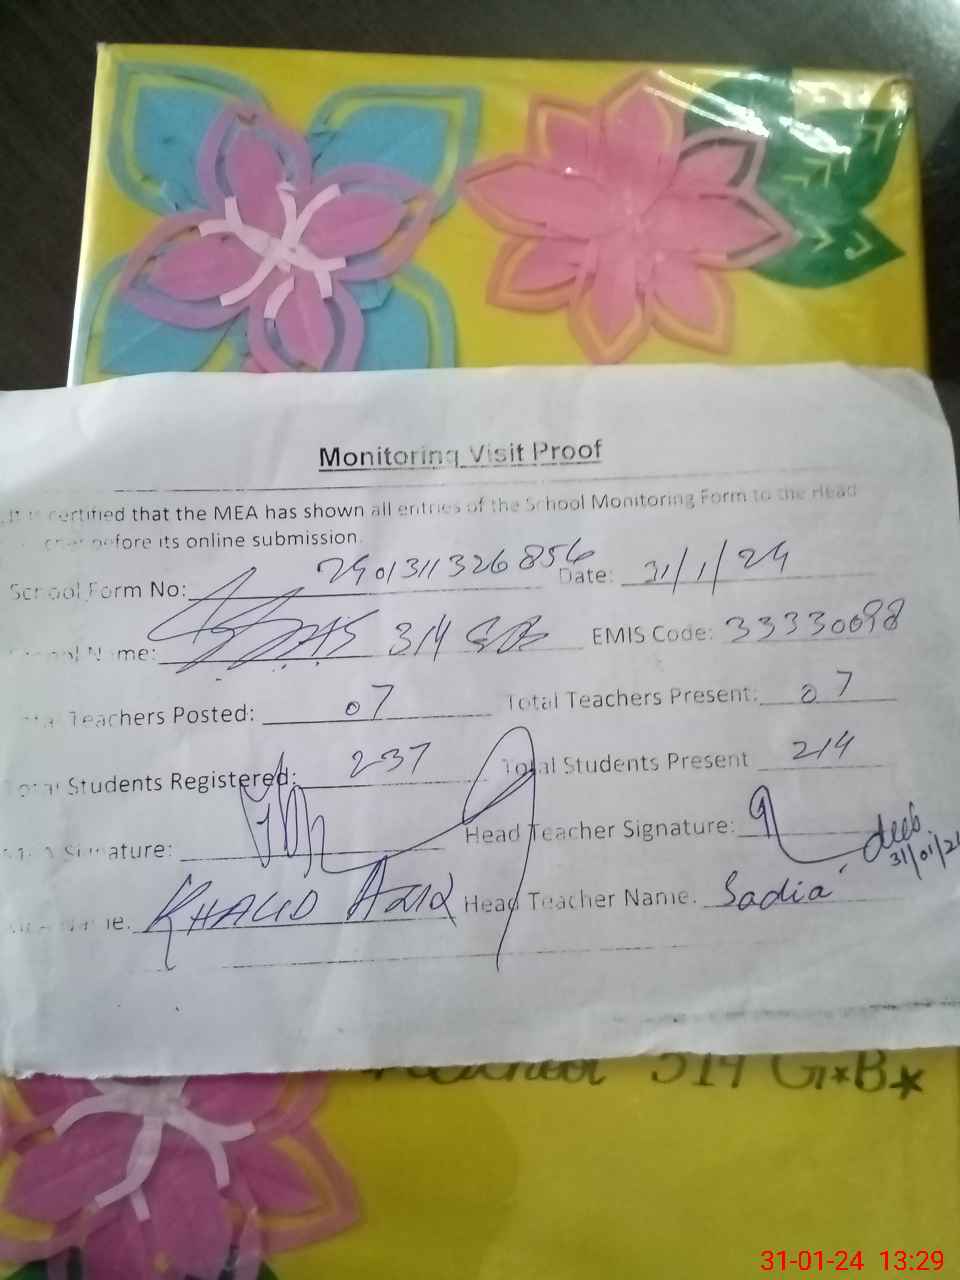 Monitoring Visit Proof
It is certified that the MEA has shown all entries of the School Monitoring Form to the Head
before its online submission.
School Form No: 290131326856 Date: 31/1/24
School Name: 314 GB EMIS Code: 33330098
Total Teachers Posted: 07 Total Teachers Present: 07
Total Students Registered: 237 Total Students Present 214
MEA Signature: Head Teacher Signature: deeb
31/01/24
MEA Name. KHALID AZIZ Head Teacher Name. Sadia
School 314 G*B*
31-01-24 13:29